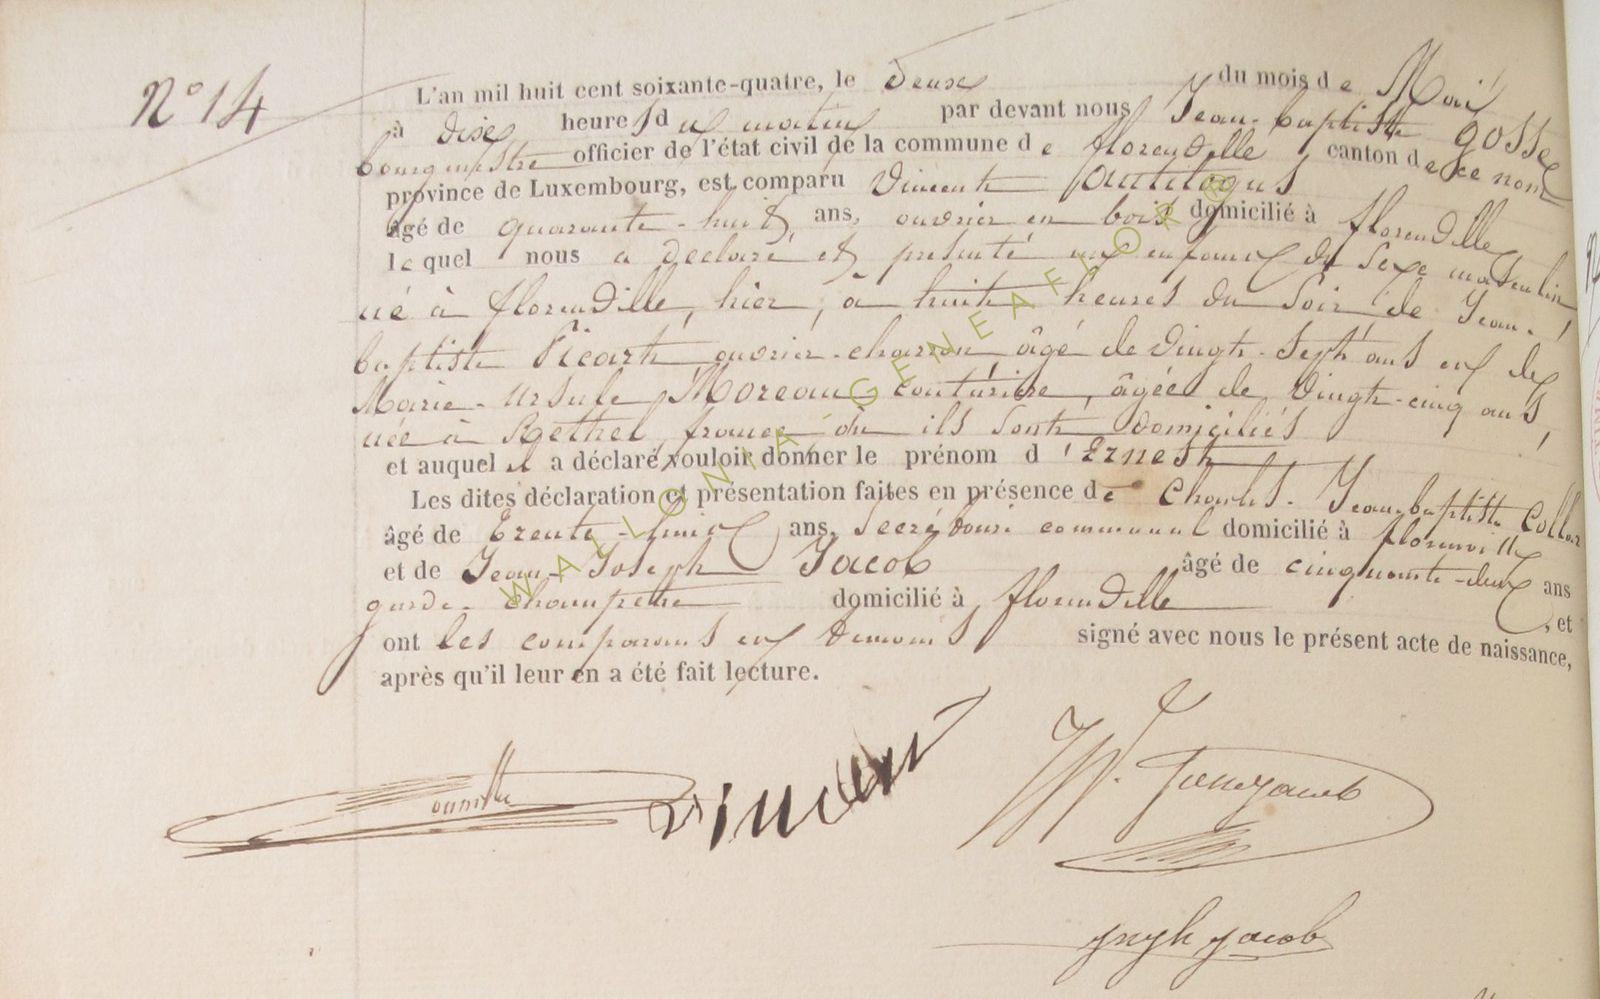 N° 14
L'an mil huit cent soixante-quatre, le deux du mois de Mai
à dix heures du matin par devant nous Jean-baptiste Gosse
bourgmestre officier de l'état civil de la commune de florenville canton de ce nom
province de Luxembourg, est comparu Vincent
âgé de quarante-huit ans, ouvrier en bois domicilié à florenville
lequel nous a déclaré et présenté un enfant du sexe masculin
né à florenville, hier, à huit heures du soir de Jean-
baptiste Picart ouvrier-charron âgé de vingt-sept ans et de
Marie-Ursule Moreau couturière, âgée de vingt-cinq ans,
née à Rethel, france où ils sont domiciliés
et auquel il a déclaré vouloir donner le prénom d'Ernest
Les dites déclaration et présentation faites en présence de Charles-Jean-baptiste
âgé de trente-huit ans, secrétaire communal domicilié à florenville
et de Jean-Joseph Jacob âgé de cinquante-deux ans
garde-champêtre domicilié à florenville, et
ont les comparans et témoins signé avec nous le présent acte de naissance,
après qu'il leur en a été fait lecture.
Vincent
Jacob
WALLONIA-GENEAFLOR